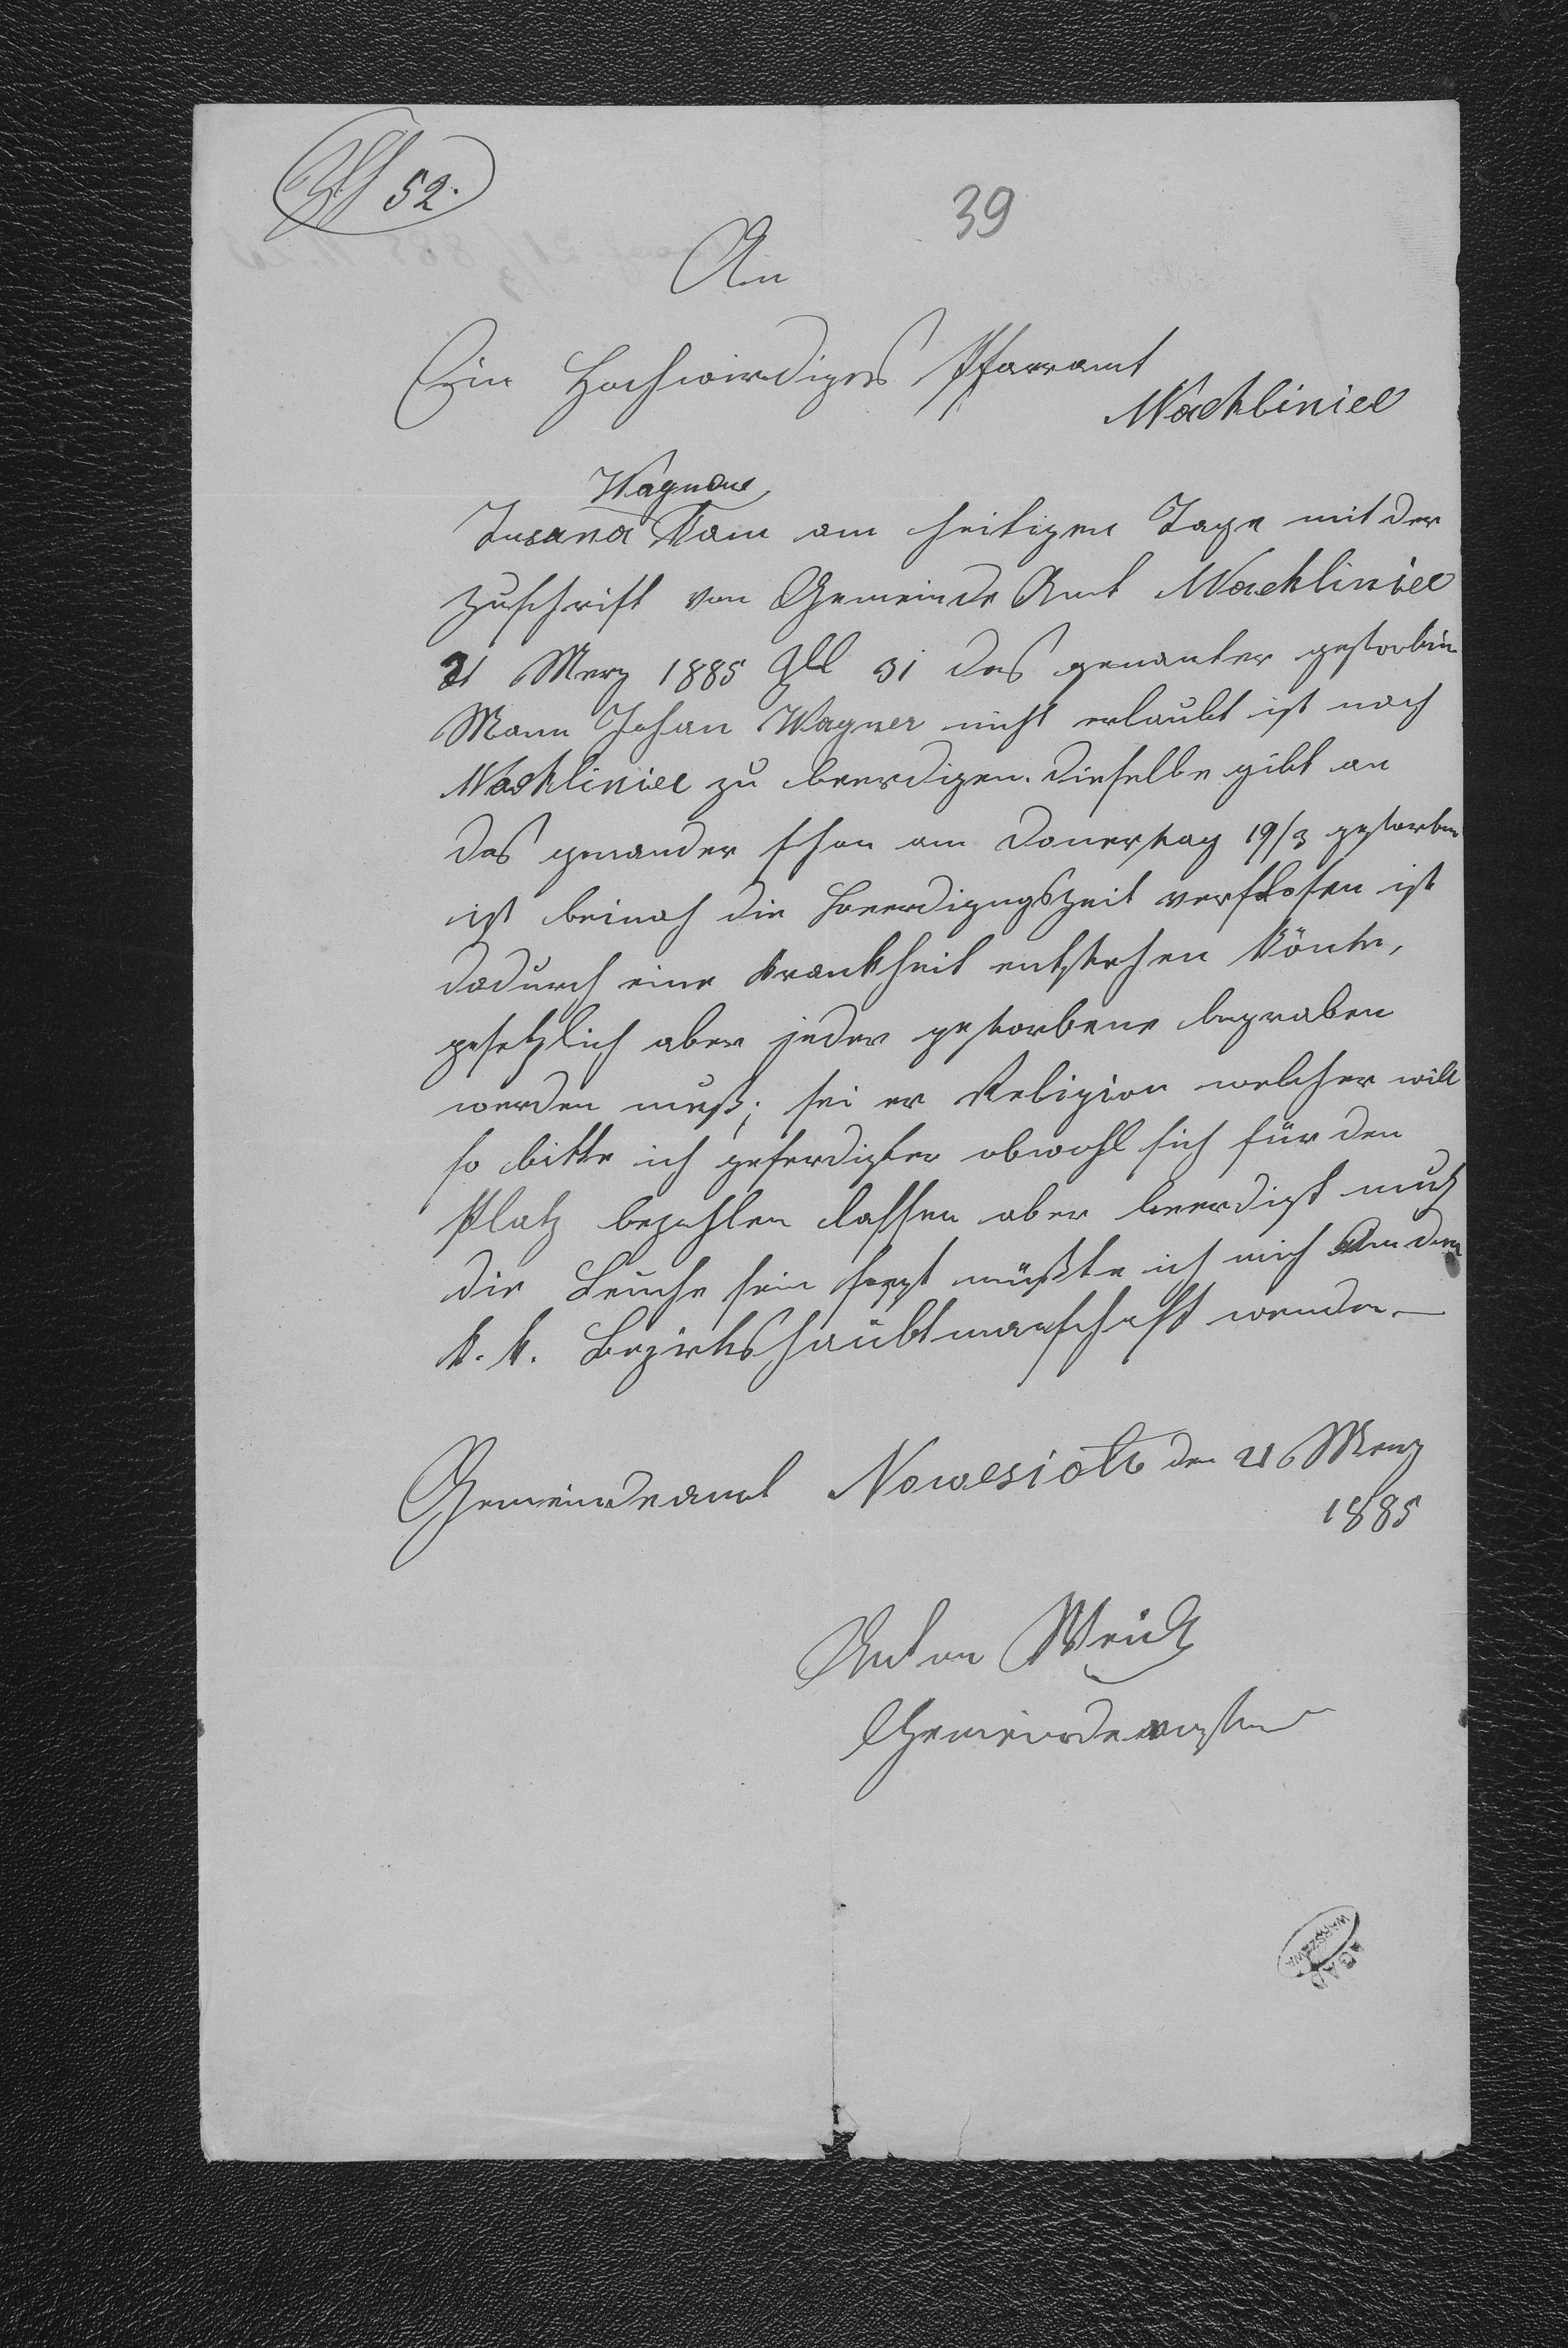 Zl 52.
39
An
Ein Hochwirdiges Pfarramt
Machliniec
Wagner
Susana kam am heitigen Tage mit der
Zuschrift von Gemeinde Amt Machliniec
21 Merz 1885 Zl 31 das genanter gestorbin
Mann Johan Wagner nicht erlaubt ist nach
Machliniec zu beerdigen. Dieselbe gibt an
das genander schon am Donerstag 19/3 gestorben
ist beinah die Beerdigugszeit verflosen ist
dadurch eine Krankheit entstehen könte,
gesetzlich aber jeder gestorbene begraben
werden muß; sei er Religion welcher will
so bitte ich geferdigter obwohl sich für den
Platz bezahlen lassen aber beerdigt muß
die Leiche sein sonst müßte ich mich An den
k. k. Bezirkshaubtmanschaft wenden —
Gemeindeamt Nowesioło den 21 Merz
1885
Anton
Gemeindevorsteher
AGAD
WARSZAWA